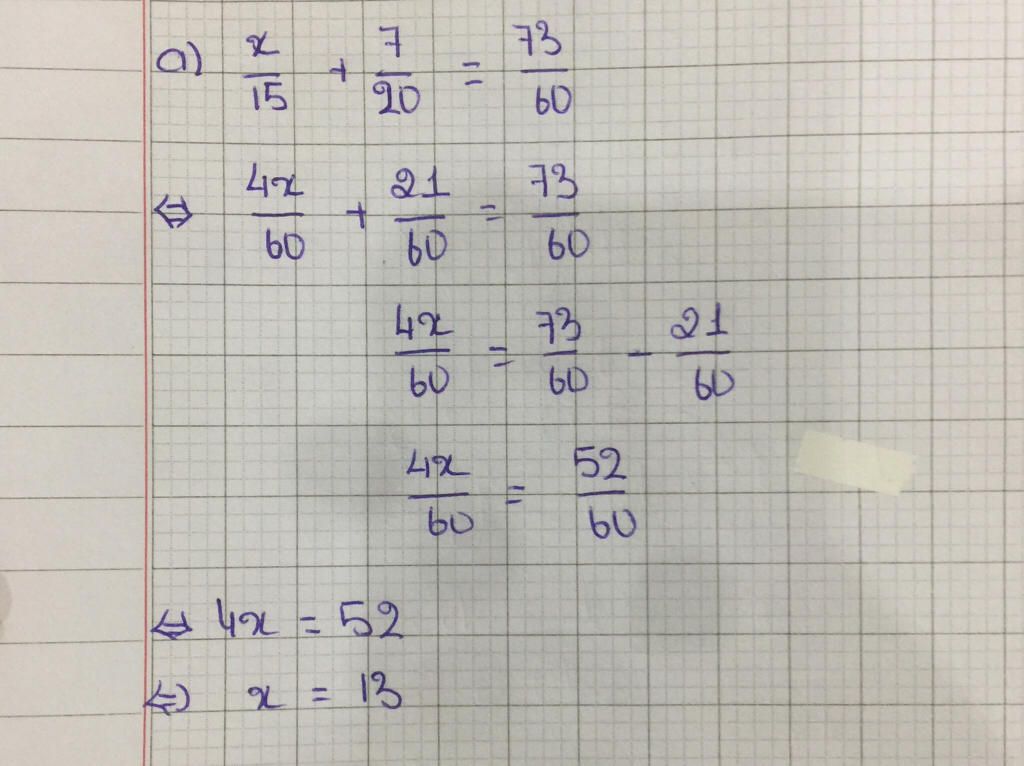 a) x/15 + 7/20 = 73/60
⇔ 4x/60 + 21/60 = 73/60
4x/60 = 73/60 - 21/60
4x/60 = 52/60
⇔ 4x = 52
⇔ x = 13